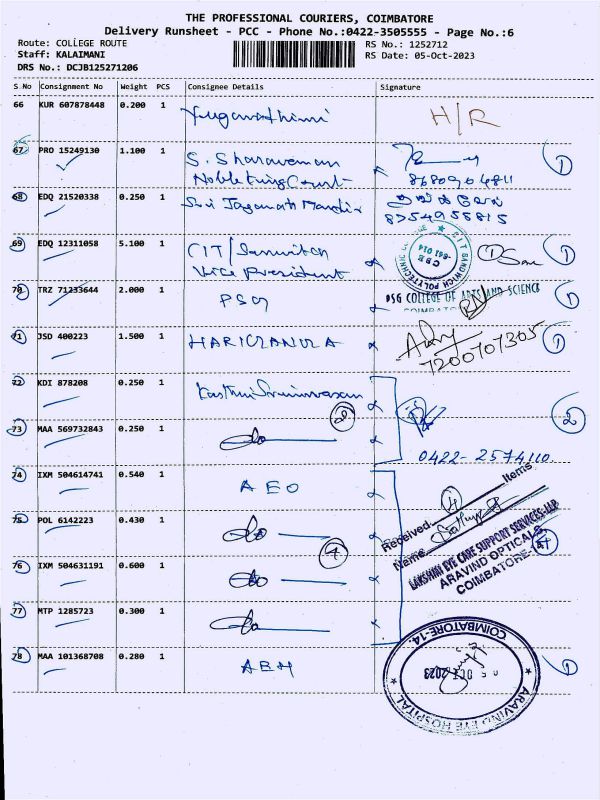 THE PROFESSIONAL COURIERS, COIMBATORE
Delivery Runsheet - PCC - Phone No.:0422-3505555 - Page No.:6
Route: COLLEGE ROUTE RS No.: 1252712
Staff: KALAIMANI RS Date: 05-Oct-2023
DRS No.: DCJB125271206
S No Consignment No Weight PCS Consignee Details Signature
66 KUR 607878448 0.200 1 H/R
67 PRO 15249130 1.100 1 S. Sharavanan 1
8680904811
68 EDQ 21520338 0.250 1 Sri Jaganath Mandir
8754955815
69 EDQ 12311058 5.100 1 CIT/Sanwitch 1
Vice President
CIT SANDWICH POLYTECHNIC COLLEGE
CBE
641 014
70 TRZ 71233644 2.000 1 PSG 1
PSG COLLEGE OF ARTS AND SCIENCE
COIMBATORE
71 JSD 400223 1.500 1 1
7200707305
72 KDI 878208 0.250 1 Kasthuri Srinivasan 2
73 MAA 569732843 0.250 1 do 2
0422-2574110.
74 IXM 504614741 0.540 1 AEO
Received 4 Items
75 POL 6142223 0.430 1 do 4
Name
LAKSHMI EYE CARE SUPPORT SERVICES-LLP
ARAVIND OPTICALS
COIMBATORE-
76 IXM 504631191 0.600 1 do
77 MTP 1285723 0.300 1 do
78 MAA 101368708 0.280 1 AEH 1
COIMBATORE-14.
OCT 2023
ARAVIND EYE HOSPITAL